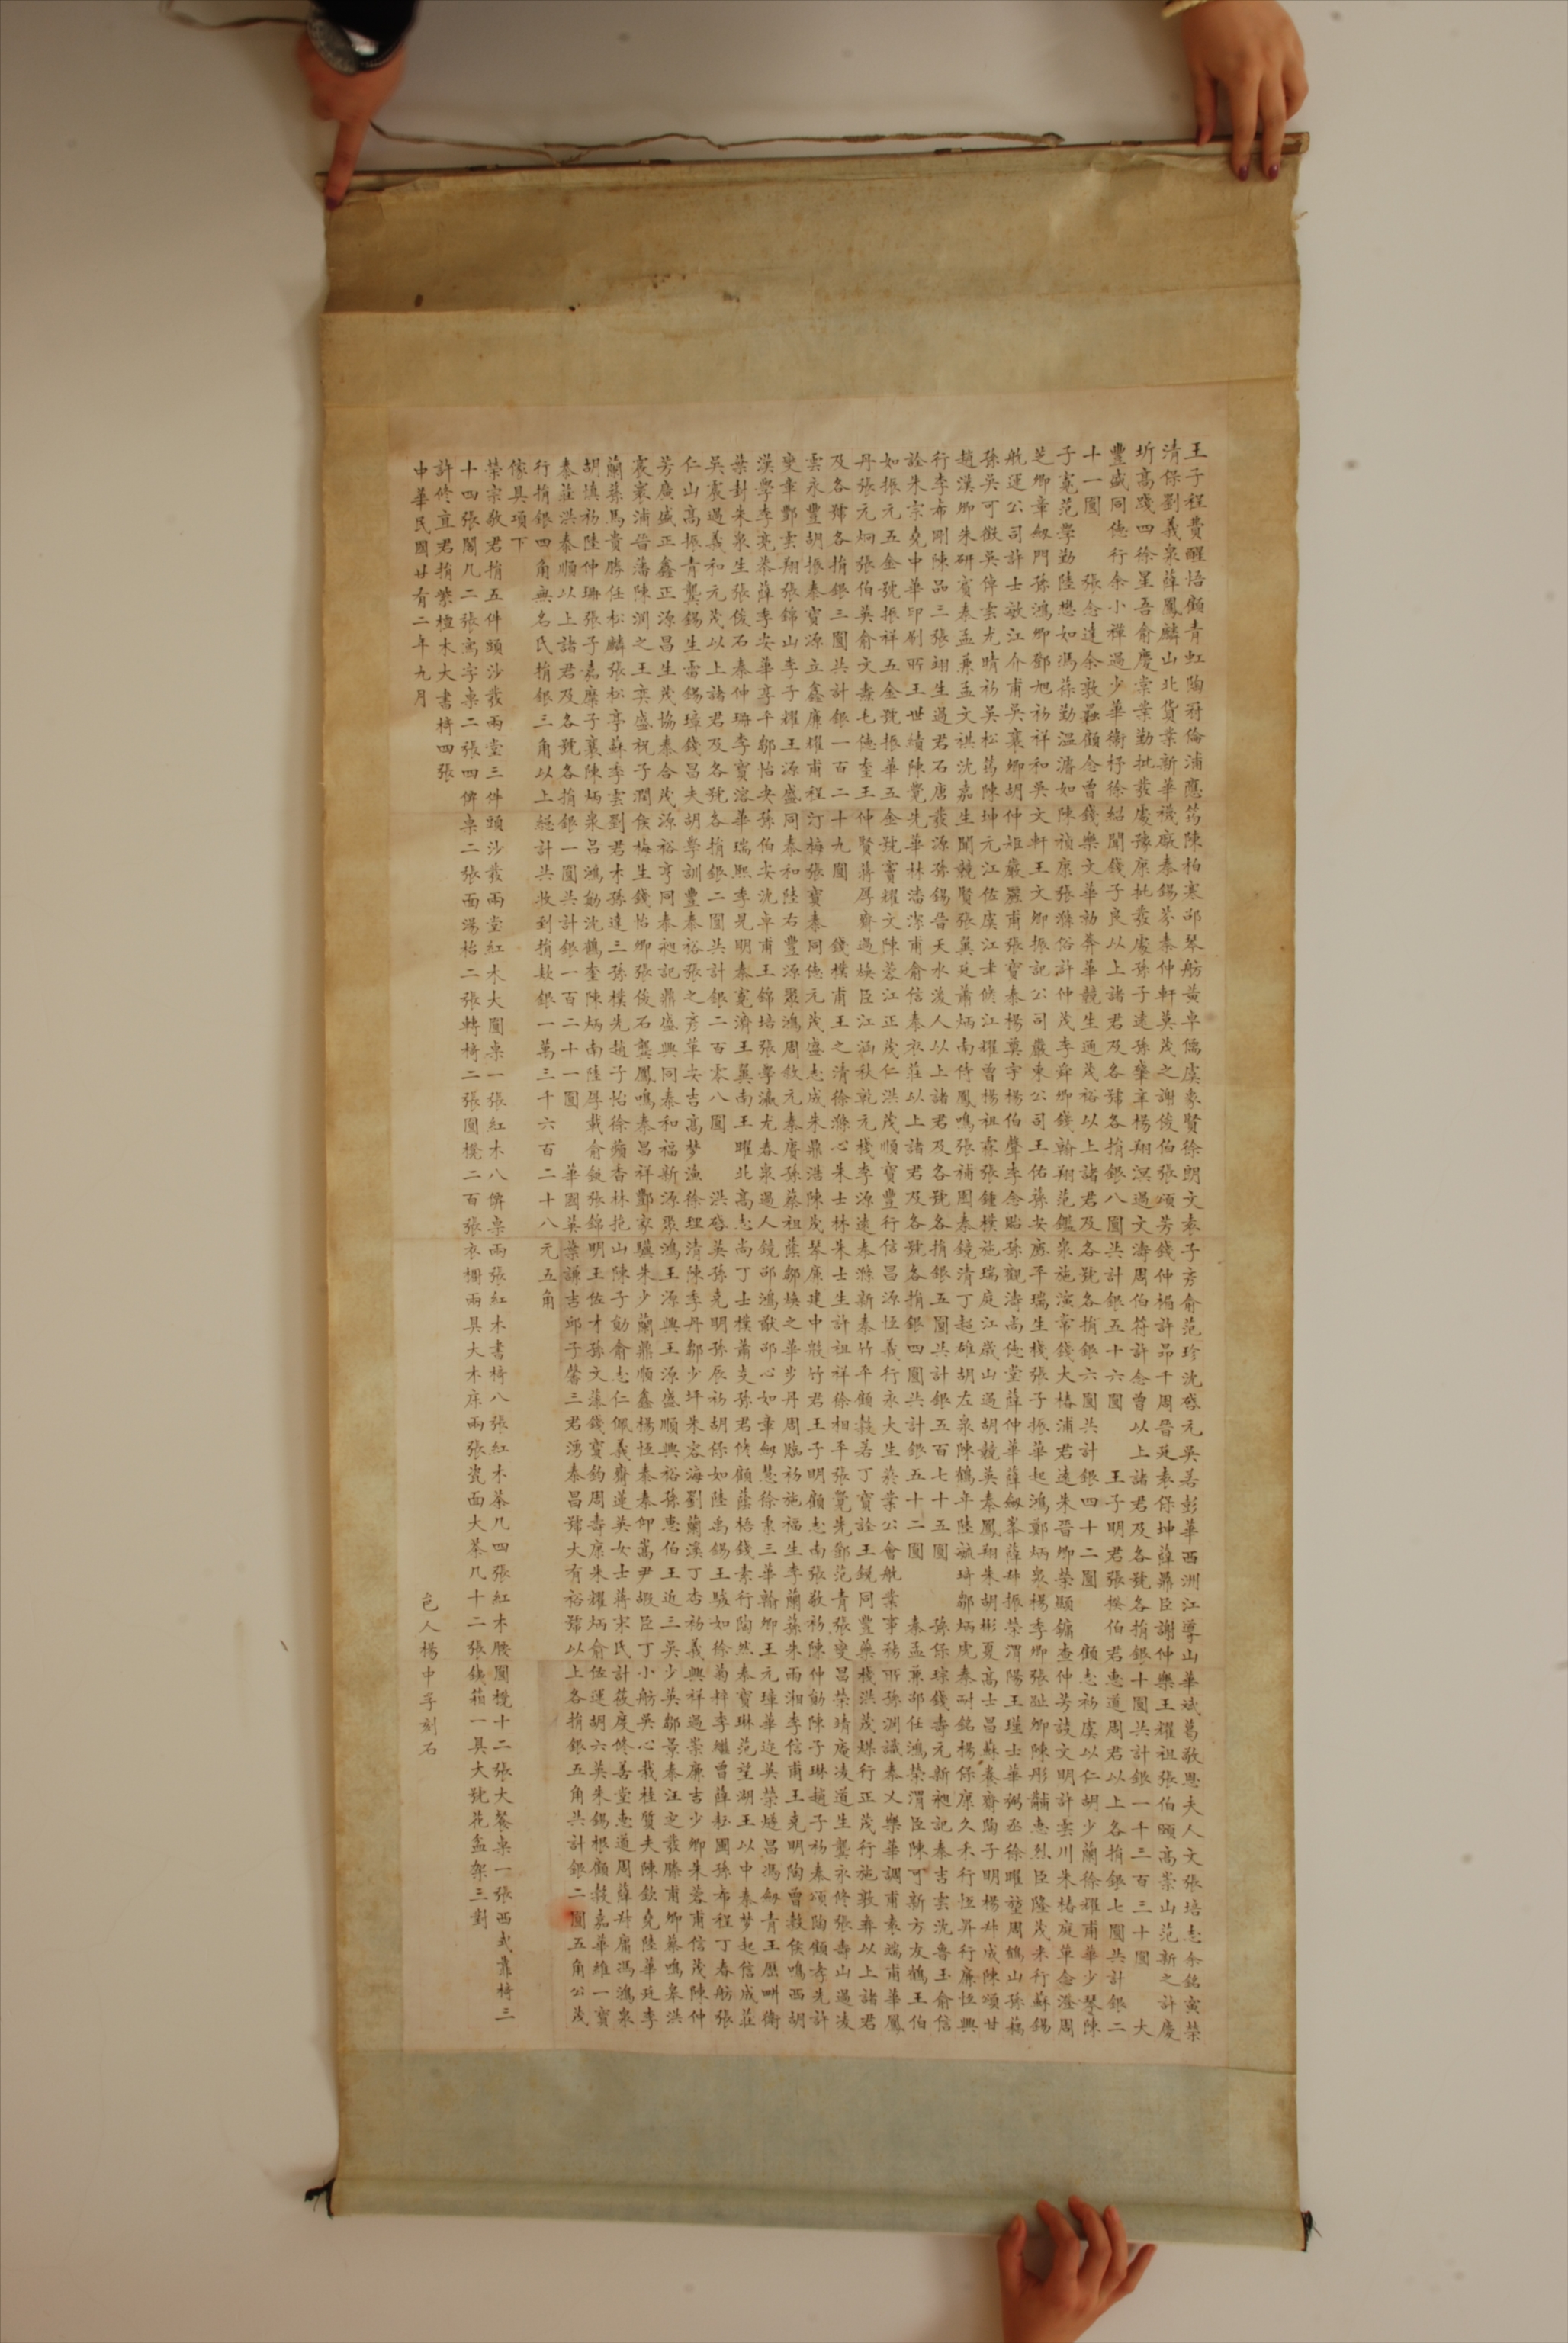 王子程費醒悟顧青虹陶冠倫浦應芴陳柏寒邵琴舫黃卓儒虞豪賢徐朗文袁子芳俞范珍沈啓元吳若彭華西洲江導山華斌葛敬恩夫人文張培志余銘寅榮
清保劉義泉薛鳳麟山北貨業新華襪廠泰錫芬秦仲軒莫茂之謝俊伯張頌芳錢仲楊許昂千周晉廷袁保坤薛鼎臣謝仲樂王耀祖張伯頤高崇山范新之計慶
圻高踐四徐星吾俞慶棠業勤批發處豫康批發處孫子遠孫肇辛楊翔溟過文濤周伯符許念曾以上諸君及各號各捐銀十圓共計銀一千三百三十圓 大
豐盛同德行余小禪過少華衛杼徐紹聞錢子良以上諸君及各號各捐銀八圓共計銀五十六圓 王子明君張楔伯君惠道周君以上各捐銀七圓共計銀二
十一圓 張念達余敦龢顧念曾錢樂文華勃奔華競生通茂裕以上諸君及各號各捐銀六圓共計銀四十二圓 顧志礽虞以仁胡少蘭徐耀甫華少琴陳
子寬范學勤陸懋如馮葆勤溫濬如陳禎康張滌俗許仲茂李舜卿錢翰翔范鑑泉施演常錢大椿浦君遠朱晉卿榮顯鏞查仲芳談文明許雲川朱椿庭單念澄周
芝卿章劔門孫鴻卿鄧旭礽祥和吳文軒王文卿振記公司嚴東公司王佑蓀安廎平瑞生棧張子振華起鴻鄭炳泉楊季卿張趾卿陳彤黼惠烈臣隆茂米行蘇錫
航運公司許士敏江介甫吳襄卿胡仲矩嚴龢甫張寶泰楊奠宇楊伯聲李念貽孫觀濤尚德堂薛仲華薛劔峯薛幷振榮渭陽王瑾士華弼丞徐曜堃周鶴山孫藕
孫吳可徵吳倬雲尤晴礽吳松筠陳坤元江佐虞江聿脩江耀曾楊祖霖張鍾樸施瑞庭江歲山過胡競英泰鳳翔朱胡彬夏高士昌蘇養齋陶子明楊幷成陳頌甘
趙漢卿朱研賓泰孟兼孟文祺沈嘉生聞競賢張冀廷蕭炳南倚鳳鳴張補周泰鏡清丁超雄胡左泉陳鶴年陸毓琦鄒炳虎泰耐銘楊保康久禾行恆昇行廉恆興
行李布剛陳品三張翊生過君石唐發源孫錫晉天水後人以上諸君及各號各捐銀五圓共計銀五百七十五圓 孫保琮錢壽元新昶記泰吉雲沈魯玉俞信
詮朱宗堯中華印刷所王世績陳覺先華林潘潔甫俞信泰衣莊以上諸君及各號各捐銀四圓共計銀五十二圓 泰孟兼邵任鴻榮渭臣陳可新方友鶴王伯
如振元五金號振祥五金號振華五金號竇耀文陳蓉江正茂仁洪茂順寶豐行信昌源恆義行永大生蔴業公會航業事務所孫淵讖泰乂樂華調甫袁端甫華鳳
丹張元炯張伯英俞文壽毛德奎王仲賢蔣厚齋過煥臣江涵秋乾元棧李源遠泰滌新泰竹平顧毅若丁寶詮王鋭同豐藥棧洪茂煤行正茂行施敦彝以上諸君
及各號各捐銀三圓共計銀一百二十九圓 錢樸甫王之清徐滌心朱士林朱士生許祖祥徐相平張覺先鄧范青張燮昌榮靖庵凌道生龔永修張壽山過凌
雲永豐胡振泰寶源立鑫廉耀甫程汀梅張寶泰同德元茂盛志成朱鼎浩陳茂琴廉建中殷竹君王子明顧志南張敬礽陳仲勛陳子琳趙子礽泰頌陶顧孝先許
燮章鄷雲翔張錦山李子耀王源盛同泰和陸右豐源眾鴻周敘元泰賡孫蔡祖蔭鄒煥之華步丹周臨礽施福生李蘭蓀朱雨湘李信甫王堯明陶曾毅侯鳴西胡
漢學李亮恭薛季安華享平鄒怡央孫伯安沈卓甫王錦培張學瀛尤春泉過人鏡邵鴻猷邵心如章劔慧徐秉三華翰卿王元璋華迎英榮燧昌馮劔青王歷畊衛
葉封朱泉生張俊石泰仲珊李寶溶華瑞熙季晃明泰寬濟王冀南王曜北高志尚丁士樸蕭支孫君倚顧蔭梧錢素行陶然泰寶琳范望湖王以中泰梦起信成莊
吳震過義和元茂以上諸君及各號各捐銀二圓共計銀二百零八圓 洪啓英孫堯明孫辰礽胡保如陸禹錫王駿如徐菊梓李繼曾薛毖圃孫布程丁春舫張
仁山高振青龔錫生雷錫璋錢昌夫胡學訓豐泰裕張之彥革安吉高梦漁徐理清陳季丹鄒少坪朱容海劉蘭溪丁杏礽義興祥過崇廉吉少卿朱蓉甫信茂陳仲
芳廣盛正鑫正源昌生茂協泰合茂源裕亨同泰昶記鼎盛興同泰和福新源聚鴻王源興王源盛順興裕孫惠伯王近三吳少英鄒景泰汪定發滕甫卿蔡鳴皋洪
宸寰浦晉藩陳潤之王奕盛祝子潤侯梅生錢怡卿張俊石龔鳳鳴泰昌祥鄷家驥朱少蘭鼎順鑫楊恆泰泰仰嵩尹嘏臣丁小舫吳心栽桂質夫陳欽堯陸華廷李
蘭蓀馬貴勝任松麟張松亭蘇季雲劉君木孫達三孫樸先趙子怡徐蘋香林抱山陳子勛俞志仁佩義齋蓮英女士蔣宋氏計莜度修善堂惠道周薛幷庸馮鴻泉
胡慎礽陸仲珊張子嘉糜子襄陳炳泉呂鴻勛沈鶴奎陳炳南陸厚載俞鈙張錦明王佐才孫文藻錢寶鈞周壽康朱耀炳俞伍運胡六英朱錫根顧毅嘉華維一寶
泰莊洪泰順以上諸君及各號各捐銀一圓共計銀一百二十一圓 華國英葉謙吉邱子馨三君湧泰昌號大有裕號以上各捐銀五角共計銀二圓五角公茂
行捐銀四角無名氏捐銀三角以上總計共收到捐款銀一萬三千六百二十八元五角
傢具項下
榮宗敬君捐五件頭沙發兩堂三件頭沙發兩堂紅木大圓桌一張紅木八僊桌兩張紅木書椅八張紅木茶几四張紅木腰圓櫈十二張大餐桌一張西式靠椅三
十四張閣几二張寫字桌二張四僊桌二張面湯枱二張轉椅二張圓櫈二百張衣櫥兩具大木床兩張瓷面大茶几十二張鐵箱一具大號花盆架三對
許修直君捐紫檀木大書椅四張
中華民國廿有二年九月 邑人楊中孚刻石